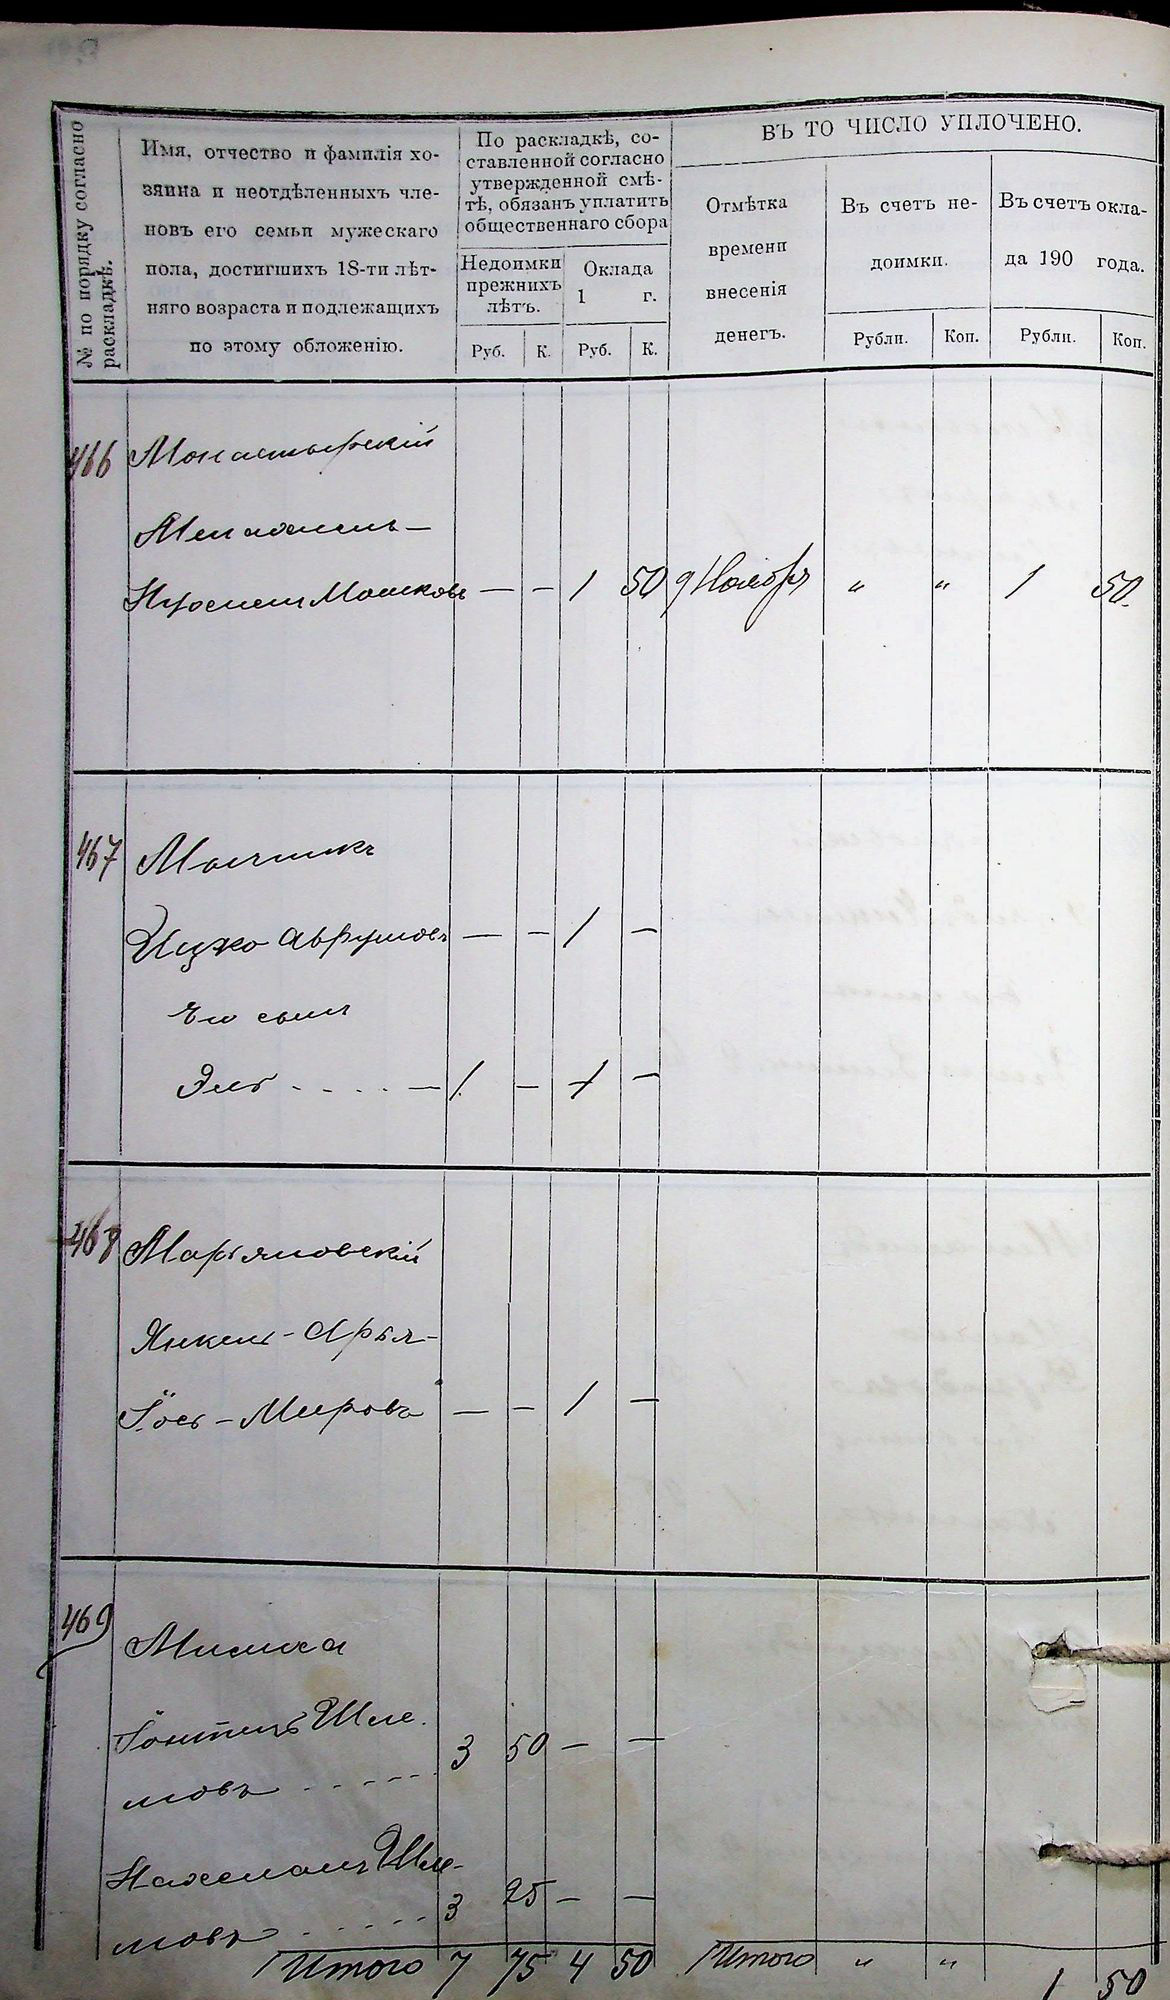 № по порядку согласно
раскладкѣ.
Имя, отчество и фамилія хо-
зяина и неотдѣленныхъ чле-
новъ его семьи мужескаго
пола, достигшихъ 18-ти лѣт-
няго возраста и подлежащихъ
по этому обложенію.
По раскладкѣ, со-
ставленной согласно
утвержденной смѣ-
тѣ, обязанъ уплатить
общественнаго сбора
Недоимки
прежнихъ
лѣтъ.
Оклада
1 г.
Руб. К. Руб. К.
ВЪ ТО ЧИСЛО УПЛОЧЕНО.
Отмѣтка
времени
внесенія
денегъ.
Въ счетъ не-
доимки.
Въ счетъ окла-
да 190 года.
Рубли. Коп. Рубли. Коп.
466 Монастырскій
Мошковъ — — 1 50 9 Ноября " " 1 50.
467
Ицко Аврумовъ — — 1 —
Его сынъ
Эль - - - - — 1. — 1 —
468 Марьяновскій
Янкель-Арья-
Іось-Мееровъ — — 1 —
469
Шле-
мовъ - - - - - 3 50 — —
Шле-
мовъ - - - - - 3 25 — —
Итого 7 75 4 50 Итого " " 1 50